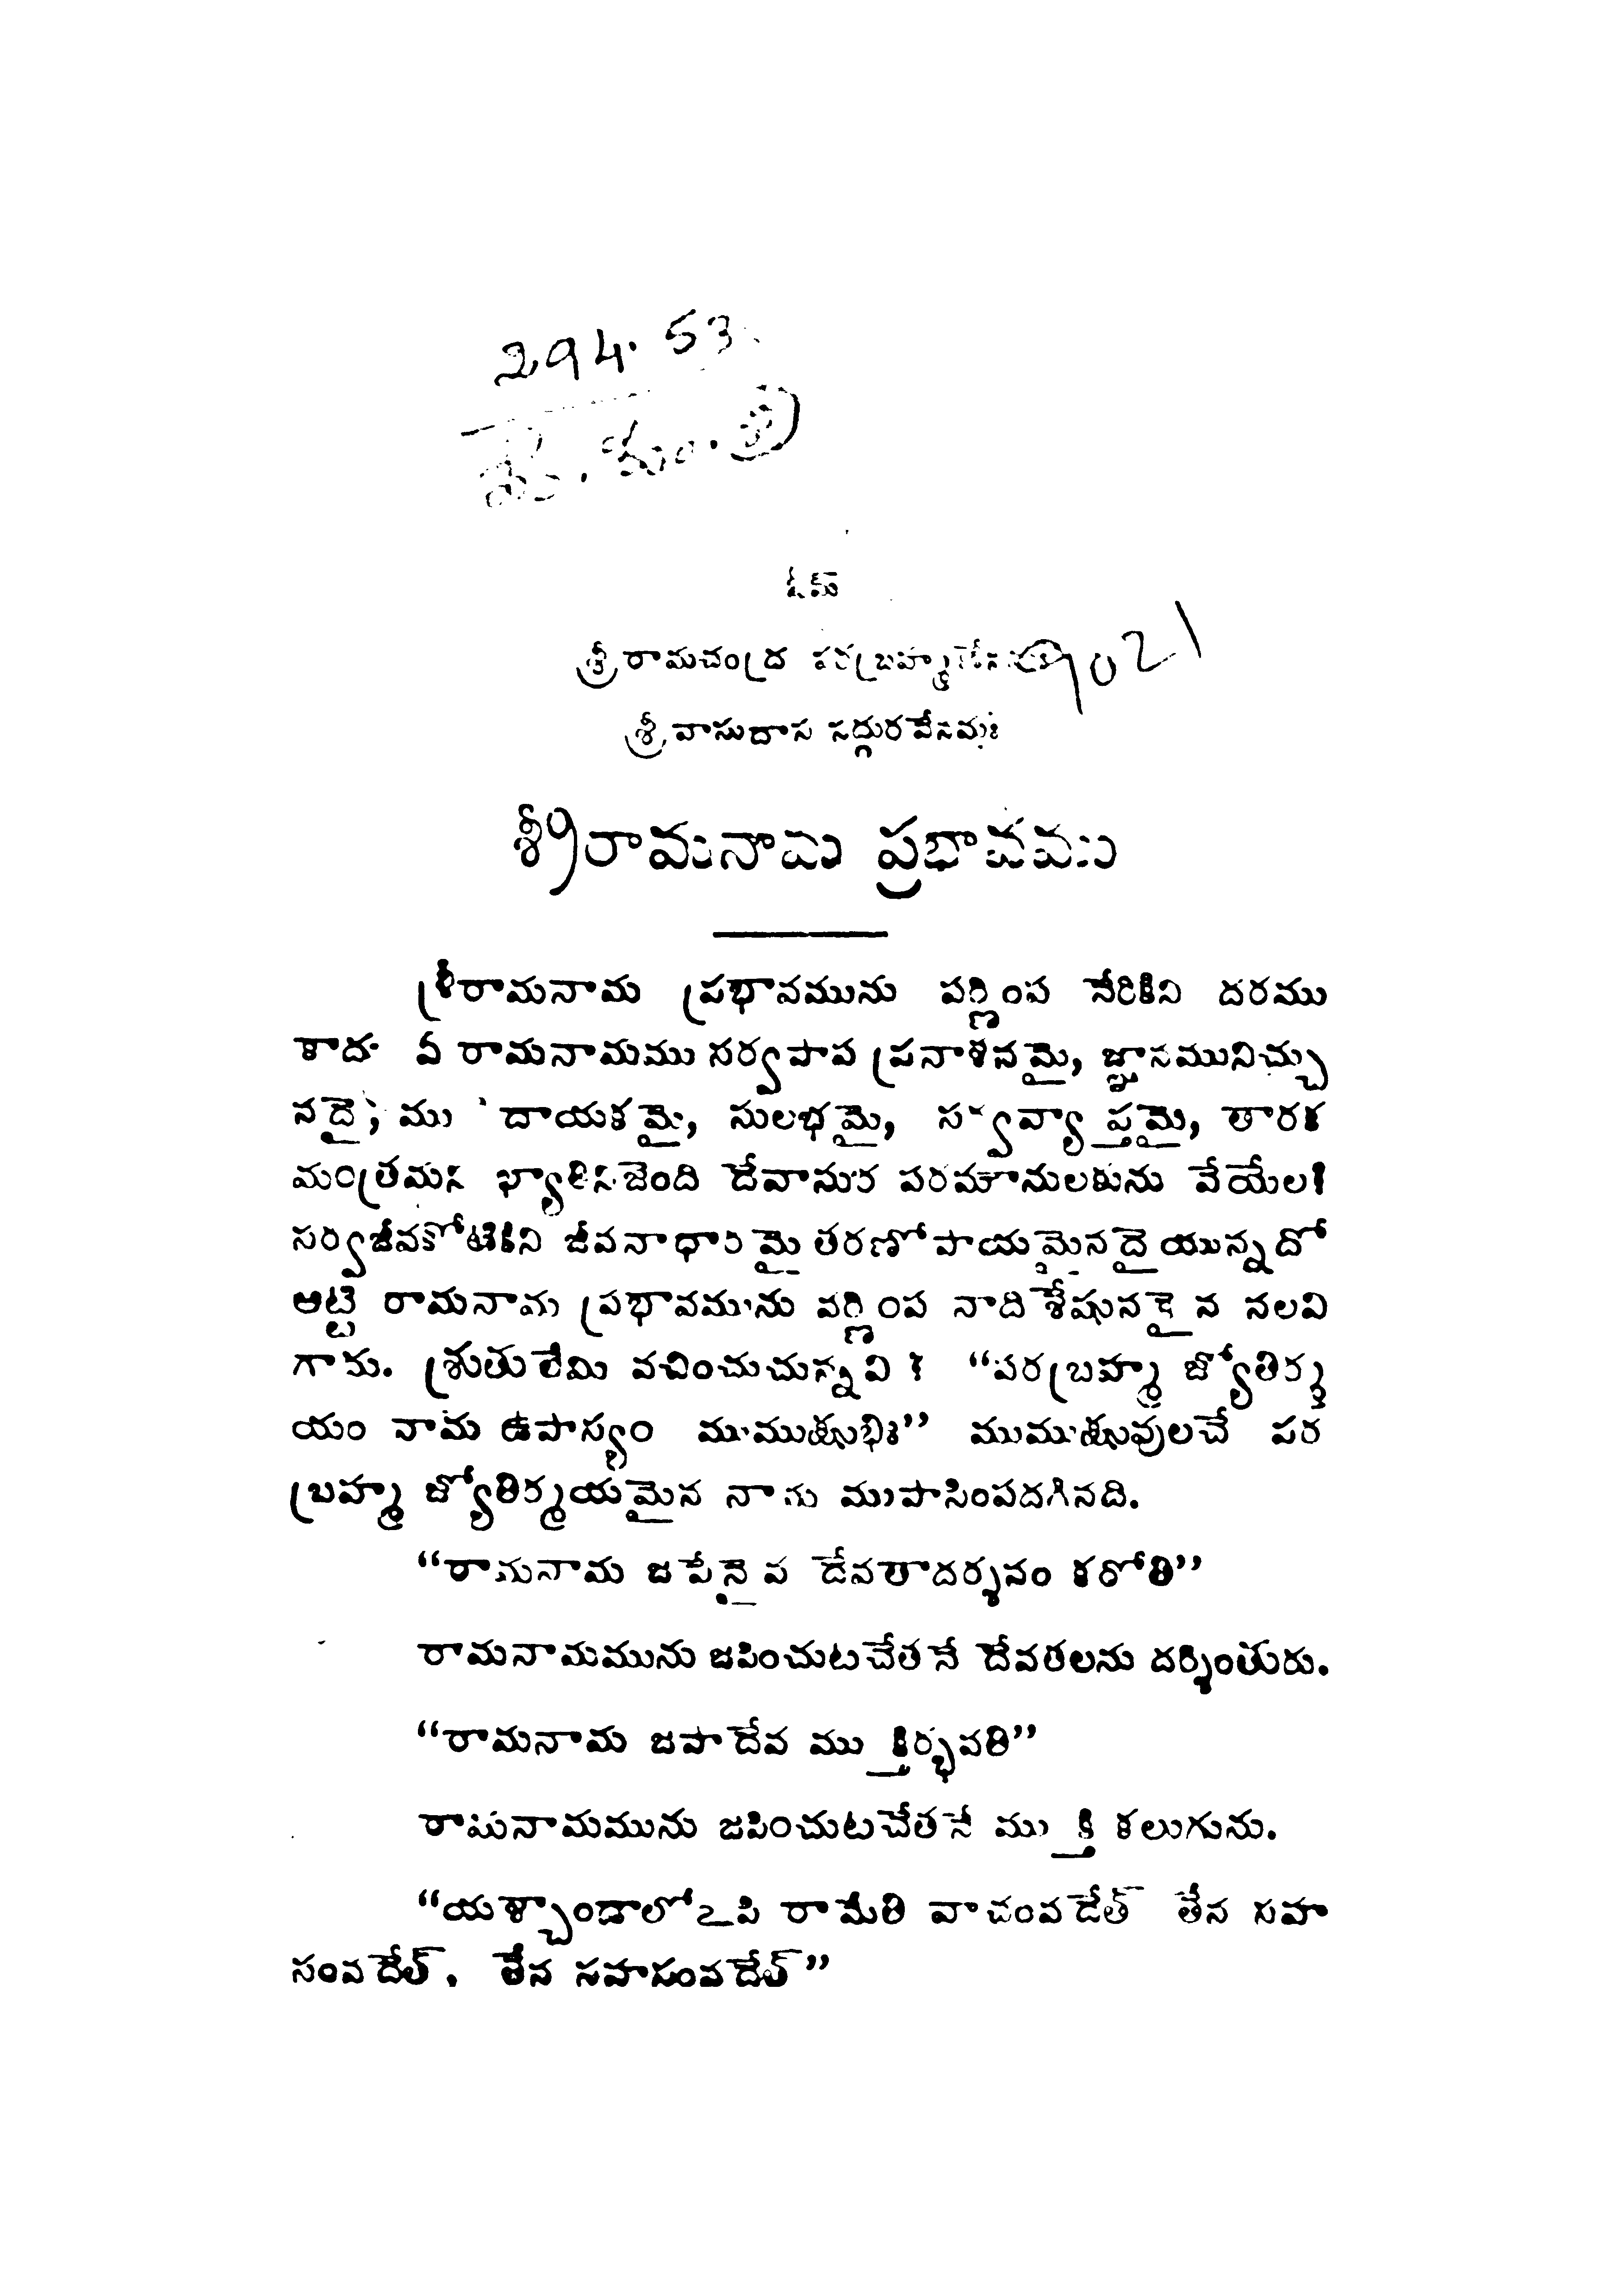 294.53
ఓమ్
శ్రీరామచంద్ర పరబ్రహ్మణేనమః 9021
శ్రీ వాసుదాస సద్గురవేనమః
శ్రీరామనామ ప్రభావము
శ్రీరామనామ ప్రభావమును వర్ణింప నేరికిని దరము
కాదు ఏ రామనామము సర్వపాప ప్రనాశనమై, జ్ఞానమునిచ్చు
నదై, దాయకమై, సులభమై, సర్వవ్యాప్తమై, తారక
మంత్రమన ఖ్యాతినిజెంది దేవాసుర పరమానులకును వేయేల!
సర్వజీవకోటికిని జీవనాధారమై తరణోపాయమైనదై యున్నదో
అట్టి రామనామ ప్రభావమును వర్ణింప నాదిశేషునకైన నలవి
గాదు. శ్రుతులేమి వచించుచున్నవి ? “పరబ్రహ్మ జ్యోతిర్మ
యం నామ ఉపాస్యం ముముక్షుభిః” ముముక్షువులచే పర
బ్రహ్మ జ్యోతిర్మయమైన నామ ముపాసింపదగినది.
“రామనామ జపేనైవ దేవతాదర్శనం కరోతి”
రామనామమును జపించుటచేతనే దేవతలను దర్శింతురు.
“రామనామ జపాదేవ ముక్తిర్భవతి”
రామనామమును జపించుటచేతనే ముక్తి కలుగును.
“యశ్చాండాలోఽపి రామేతి వాచంవదేత్ తేన సహ
సంవదేత్, తేన సహసంవదేత్”